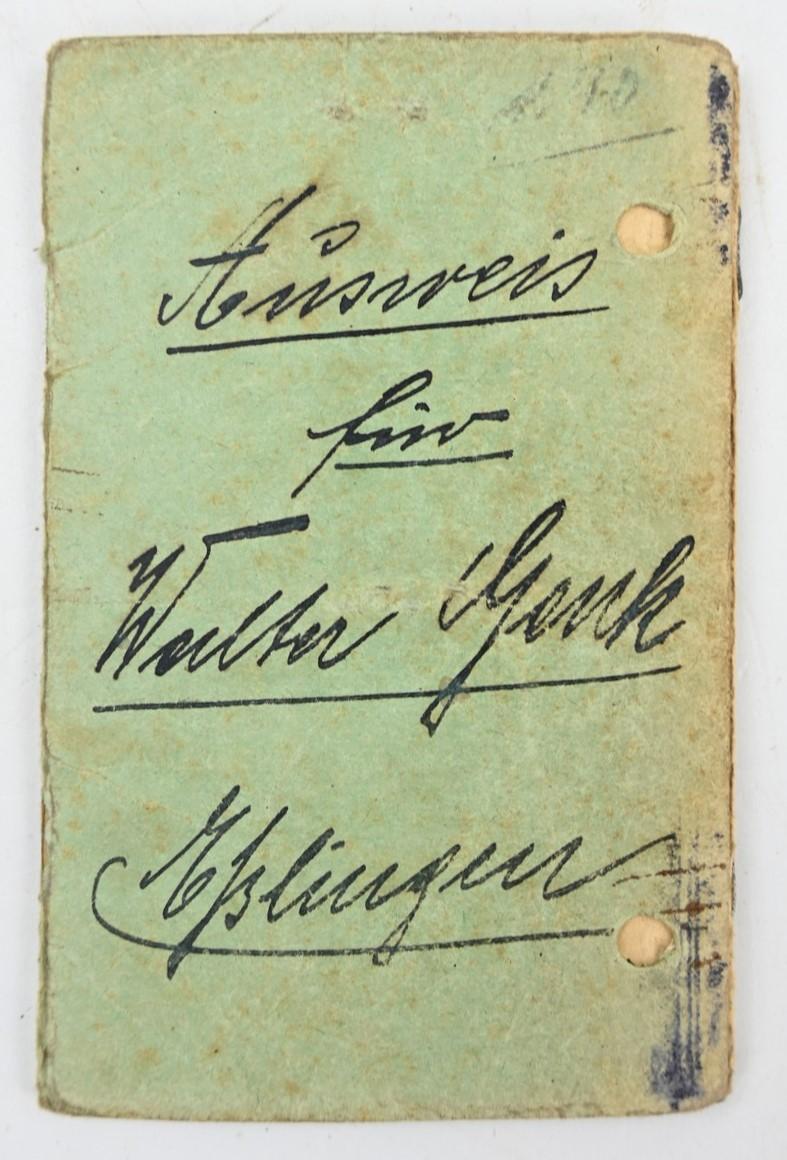 Ausweis
für
Walter Genk
Eßlingen